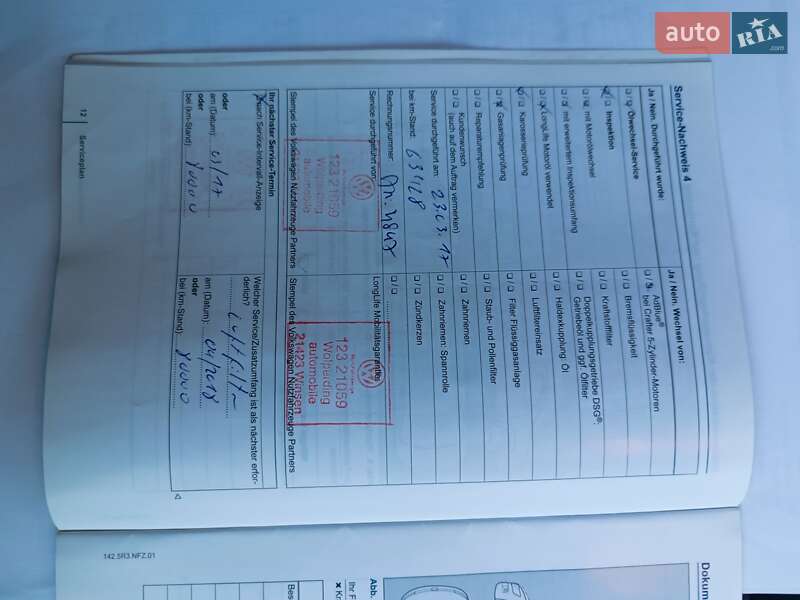 auto RIA.com
Service-Nachweis 4
Ja / Nein. Durchgeführt wurde:
Ölwechsel-Service
Inspektion
mit Motorölwechsel
mit erweitertem Inspektionsumfang
LongLife Motoröl verwendet
Karosserieprüfung
Gasanlagenprüfung
Reparaturempfehlung
Kundenwunsch
(auch auf dem Auftrag vermerken)
Service durchgeführt am: 23.03.17
bei km-Stand: 63128
Rechnungsnummer:
Service durchgeführt von:
123 21059
Wolperding
automobile
Stempel des Volkswagen Nutzfahrzeuge Partners
Ja / Nein. Wechsel von:
AdBlue®
bei Crafter 5-Zylinder-Motoren
Bremsflüssigkeit
Kraftstofffilter
Doppelkupplungsgetriebe DSG®:
Getriebeöl und ggf. Ölfilter
Haldexkupplung: Öl
Luftfiltereinsatz
Filter Flüssiggasanlage
Staub- und Pollenfilter
Zahnriemen
Zahnriemen: Spannrolle
Zündkerzen
LongLife Mobilitätsgarantie
123 21059
Wolperding
automobile
21423 Winsen
Stempel des Volkswagen Nutzfahrzeuge Partners
Ihr nächster Service-Termin
nach Service-Intervall-Anzeige
oder
am (Datum):
oder
bei (km-Stand): 90000
Welcher Service/Zusatzumfang ist als nächster erfor-
derlich?
am (Datum): 04/2018
oder
bei (km-Stand): 90000
12
Serviceplan
142.5R3.NFZ.01
Dokum
Abb.
Ihr F
Bes